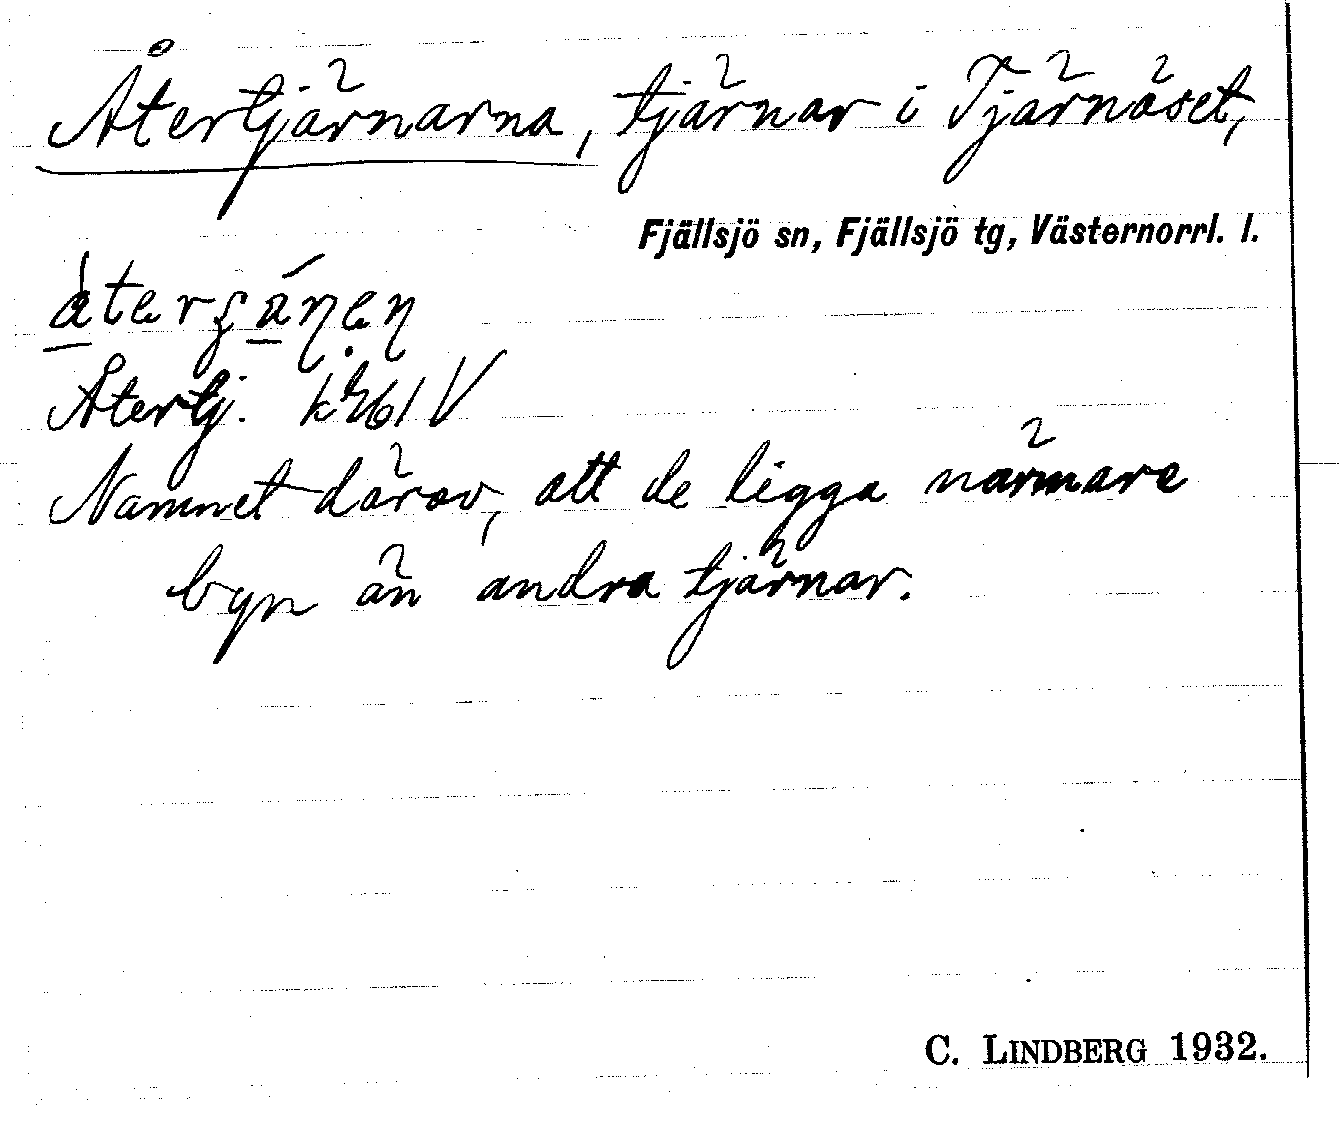 Återtjärnarna, tjärnar i Tjärnäset,
Fjällsjö sn, Fjällsjö tg, Västernorrl. l.
Återtj. kr61V
Namnet därav, att de ligga närmare
byn än andra tjärnar.
C. LINDBERG 1932.